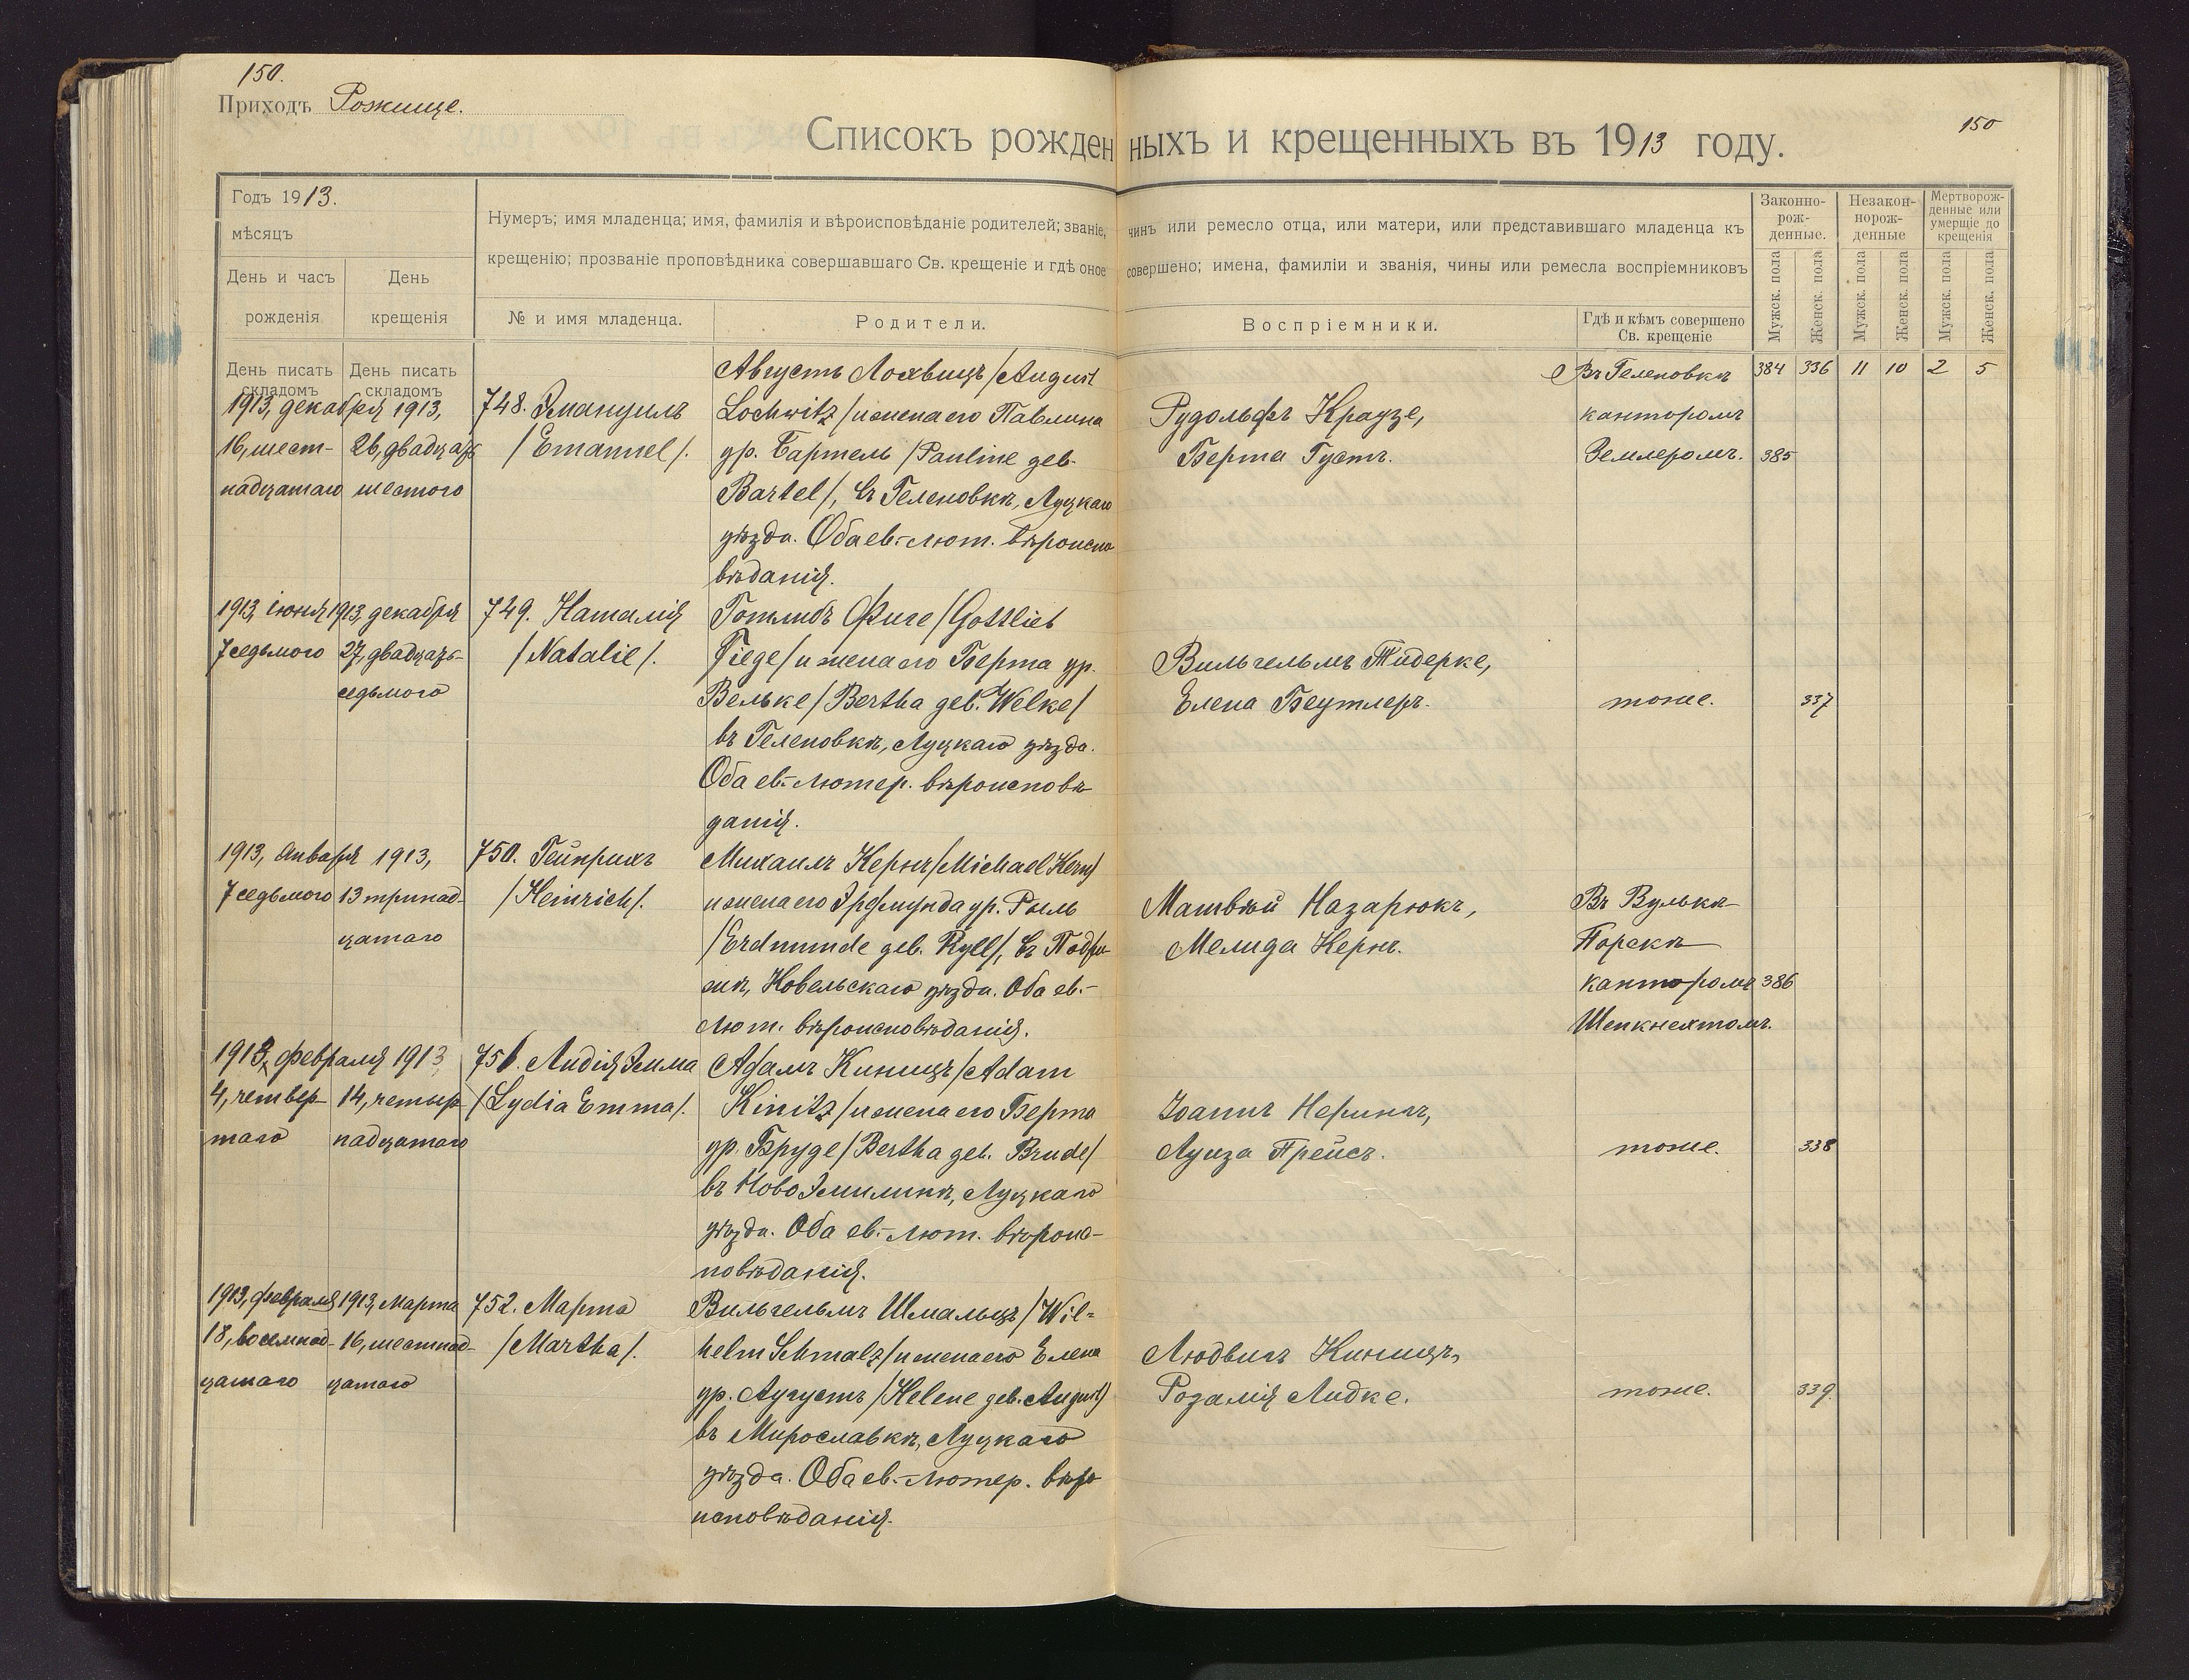 150.
Приходъ Рожище.
150
Списокъ рожденныхъ и крещенныхъ въ 1913 году.
Годъ 1913.
мѣсяцъ
День и часъ рожденія
День крещенія
Нумеръ; имя младенца; имя, фамилія и вѣроисповѣданіе родителей; званіе, чинъ или ремесло отца, или матери, или представившаго младенца къ
крещенію; прозваніе проповѣдника совершавшаго Св. крещеніе и гдѣ оное совершено; имена, фамиліи и званія, чины или ремесла воспріемниковъ
№ и имя младенца.
Родители.
Воспріемники.
Гдѣ и кѣмъ совершено
Св. крещеніе
Законно-
рож-
денные.
Незакон-
норож-
денные
Мертворож-
денные или
умершіе до
крещенія
Мужск. пола
Женск. пола
Мужск. пола
Женск. пола
Мужск. пола
Женск. пола
День писать
складомъ
День писать
складомъ
384 336 11 10 2 5
1913, декабря
16, шест-
надцатаго
1913,
26, двадцать
шестого
748. Эмануилъ
/Emanuel/.
Августъ Лохвицъ /August
Lochwitz/ и жена его Павлина
ур. Бартель /Pauline geb.
Bartel/, въ Геленовкѣ, Луцкаго
уѣзда. Оба ев.-лют. вѣроиспо
вѣданія.
Рудольфъ Краузе,
Берта Густъ.
Въ Геленовкѣ
канторомъ
Землеромъ.
385
1913, іюня
7 седьмого
1913, декабря
27, двадцать-
седьмого
749. Наталія
/Natalie/.
Готлибъ Фиге /Gottlieb
Fiege/ и жена его Берта ур.
Вельке /Bertha geb. Welke/
въ Геленовкѣ, Луцкаго уѣзда.
Оба ев.-лютер. вѣроисповѣ
данія.
Вильгельмъ Тидерке,
Елена Беутлеръ.
тоже.
337
1913, Января
7 седьмого
1913,
13 тринад-
цатаго
750. Гейнрихъ
/Heinrich/.
Михаилъ Кернъ /Michael Kern/
и жена его Эрдмунда ур. Рылль
/Erdmunde geb. Ryll/, въ Подры
жѣ, Ковельскаго уѣзда. Оба ев.-
лют. вѣроисповѣданія.
Матвѣй Назарюкъ,
Мелида Кернъ.
Въ Вулькѣ
Порскѣ
канторомъ
Шепкнехтомъ.
386
1913, февраля
4, четвер-
таго
1913
14, четыр-
надцатаго
751. Лидія Эмма
/Lydia Emma/.
Адамъ Киницъ /Adam
Kinitz/ и жена его Берта
ур. Бруде /Bertha geb. Brude/
въ Ново Эмилинѣ, Луцкаго
уѣзда. Оба ев.-лют. вѣроис-
повѣданія.
Іоаннъ Нерингъ,
Луиза Прейсъ.
тоже.
338
1913, февраля
18, восемнад-
цатаго
1913, Марта
16, шестнад-
цатаго
752. Марта
/Martha/.
Вильгельмъ Шмальцъ /Wil-
helm Schmalz/ и жена его Елена
ур. Аугустъ /Helene geb. August/
въ Мирославкѣ, Луцкаго
уѣзда. Оба ев.-лютер. вѣро
исповѣданія.
Людвигъ Киницъ,
Розалія Лидке.
тоже.
339.